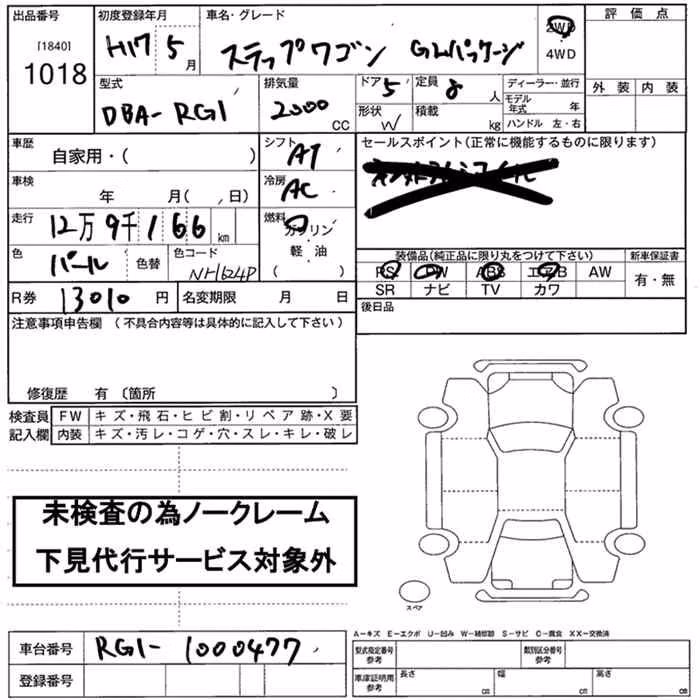 出品番号 初度登録年月 車名・グレード 評価点
[1840]
1018 H17 5月 ステップワゴン GLパッケージ 2WD
4WD
外装 内装
型式 排気量 ドア 定員 ディーラー・並行
DBA-RG1 2000CC 5 8人 モデル年式 年
形状 W 積載 kg ハンドル 左・右
車歴 シフト セールスポイント(正常に機能するものに限ります)
自家用・( ) AT
車検 冷房
年 月( 、日) AC
走行 燃料
12万9千166km ガソリン
軽・油
( )
色 パール 色替 色コード NH624P
装備品(純正品に限り丸をつけて下さい) 新車保証書
PS PW ABS エアB AW 有・無
SR ナビ TV カワ
R券 13010円 名変期限 月 日 後日品
注意事項申告欄(不具合内容等は具体的に記入して下さい)
修復歴 有〔箇所 〕
検査員 FW キズ・飛石・ヒビ割・リペア跡・X要
記入欄 内装 キズ・汚レ・コゲ・穴・スレ・キレ・破レ
未検査の為ノークレーム
下見代行サービス対象外
スペア
A−キズ E−エクボ U−凹み W−補修跡 S−サビ C−腐食 XX−交換済
車台番号 RG1-1000477
型式指定番号 参考 類別区分番号 参考
登録番号
車庫証明用 参考 長さ cm 幅 cm 高さ cm